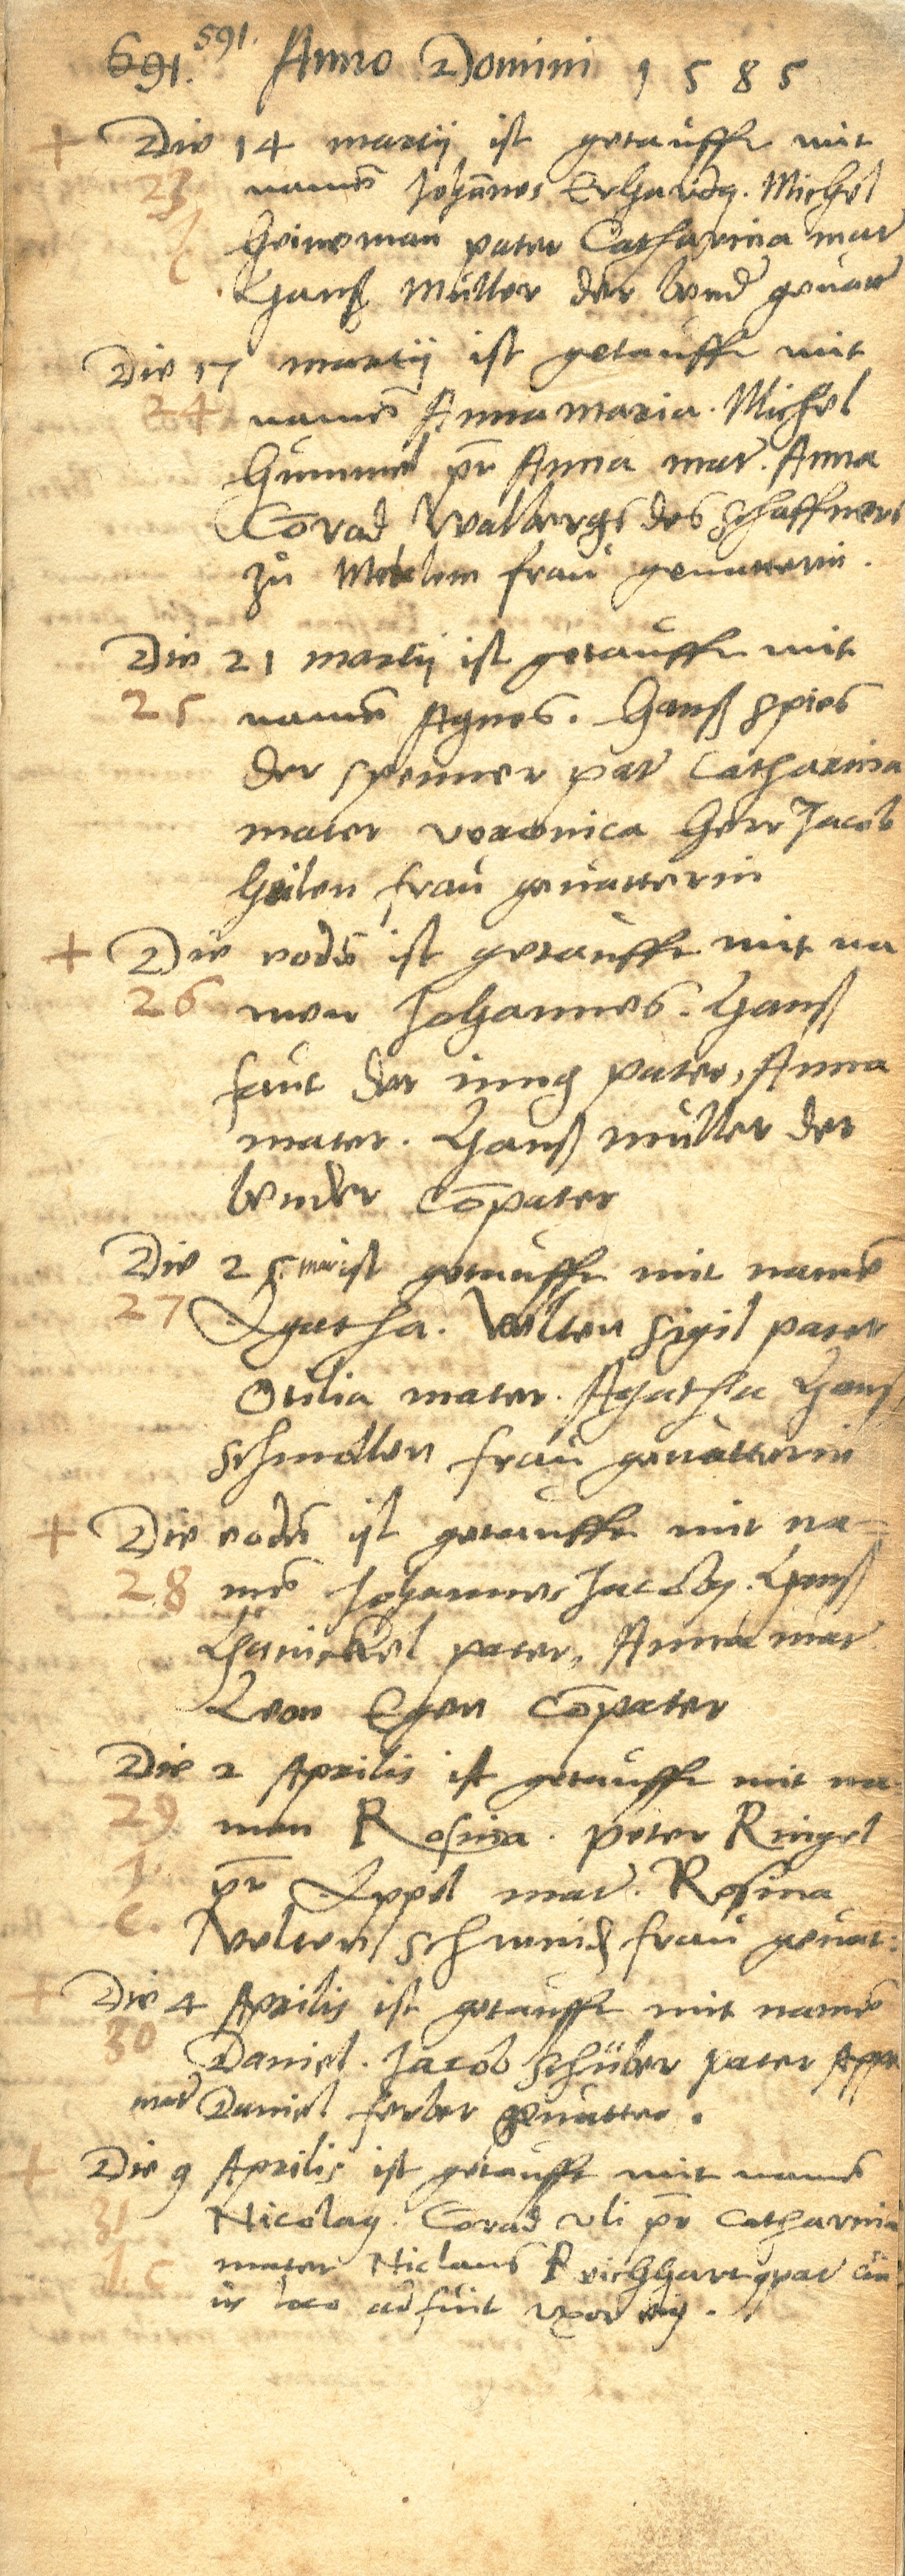 691. 591. Anno Domini 1585
+ Die 14 martij ist getaufft mit
23 namē Johānes Erhardq. Michel
Heineman pater Catharina mat̄
Hanß Müller der bend̄ geuatt̄
Die 17 martij ist getaufft mit
24 namē Anna maria. Michel
Hümmel pr̄ Anna mat̄. Anna
Cōrad Walbergs des schaffners
zů frau geuatterin.
Die 21 martij ist getaufft mit
25 namē Agnes. Hanß Spies
der spenner pat̄ Catharina
mater veronica Herr Jacob
Heilen frau geuatterin
+ Die eodē ist getaufft mit na
26 men Johannes. Hanß
faut der jung pater, Anna
mater. Hanß müller der
bender Cōpater
Die 25 mar ist getaufft mit namē
27 Agatha. Velten Sigil pater
Otilia mater. Agatha Hanß
frau geuatterin
+ Die eodē ist getaufft mit na-
28 mē Johannes Jacobq. Hanß
pater, Anna mat̄
Leon Cōpater
Die 2 Aprilis ist getaufft mit na-
29 men Rosina. peter Ringel
1. pr̄ Appel mat̄. Rosina
c. Velten Schmids frau geuat:
+ Die 4 Aprilis ist getaufft mit namē
30 Daniel. Jacob Schüler pater
mat̄ Daniel ferber geuatter.
+ Die 9 Aprilis ist getaufft mit namē
31 Nicolaq. Cōrad Uli pr̄ Catharina
1. c mater Niclaus
in loco adfuit uxor eiq.